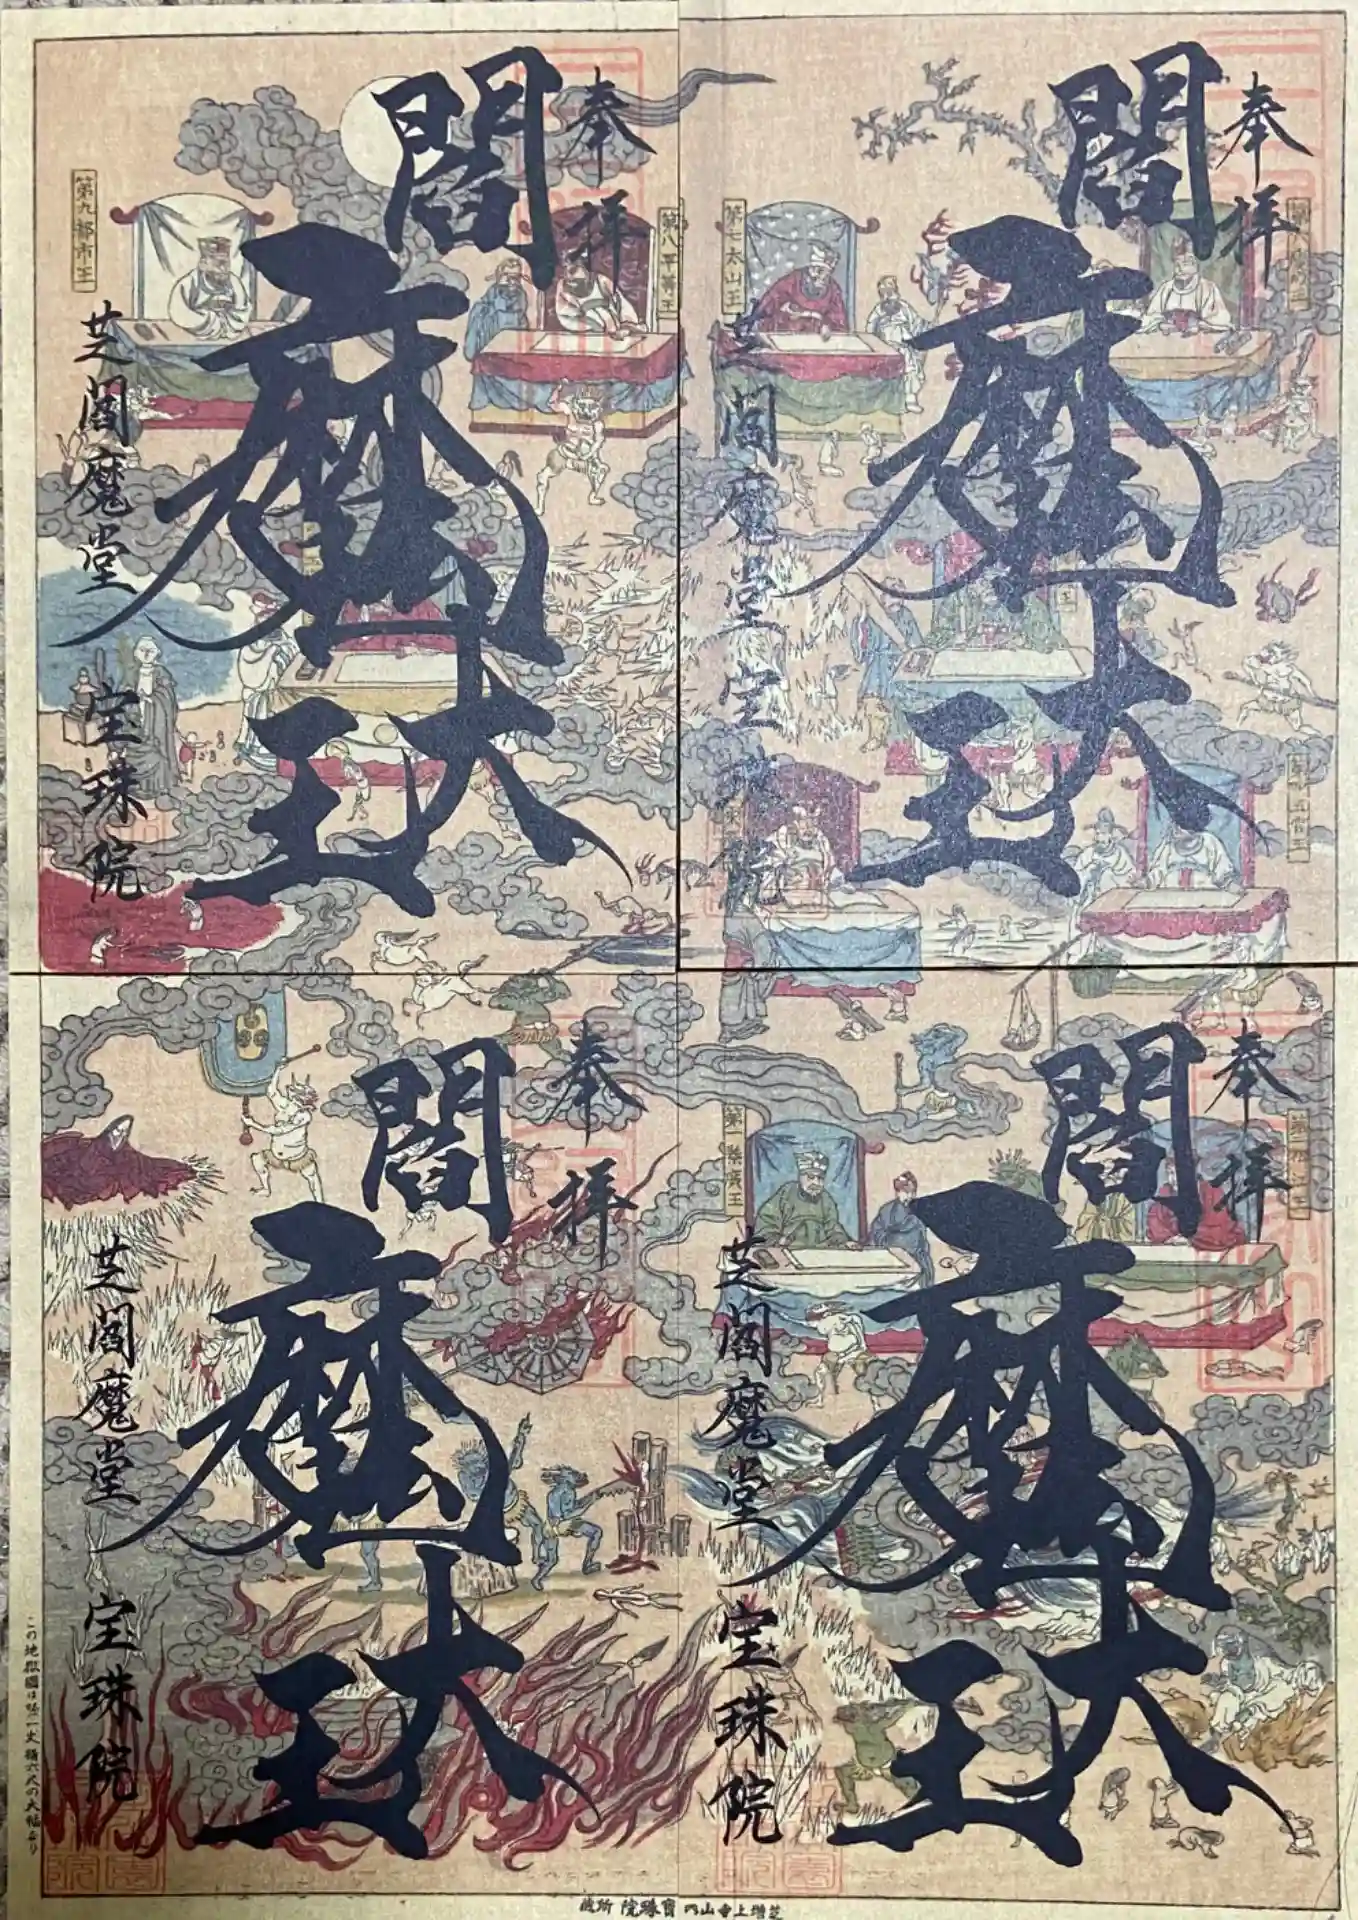 奉拝
閻魔大王
芝閻魔堂 宝珠院
第八平等王
第九都市王
奉拝
閻魔大王
芝閻魔堂宝珠院
第七太山王
奉拝
閻魔大王
芝閻魔堂 宝珠院
この地獄圖は竪一丈 横六尺の大幅より
奉拝
閻魔大王
芝閻魔堂 宝珠院
第一秦廣王
芝増上寺山内 寳珠院 所蔵